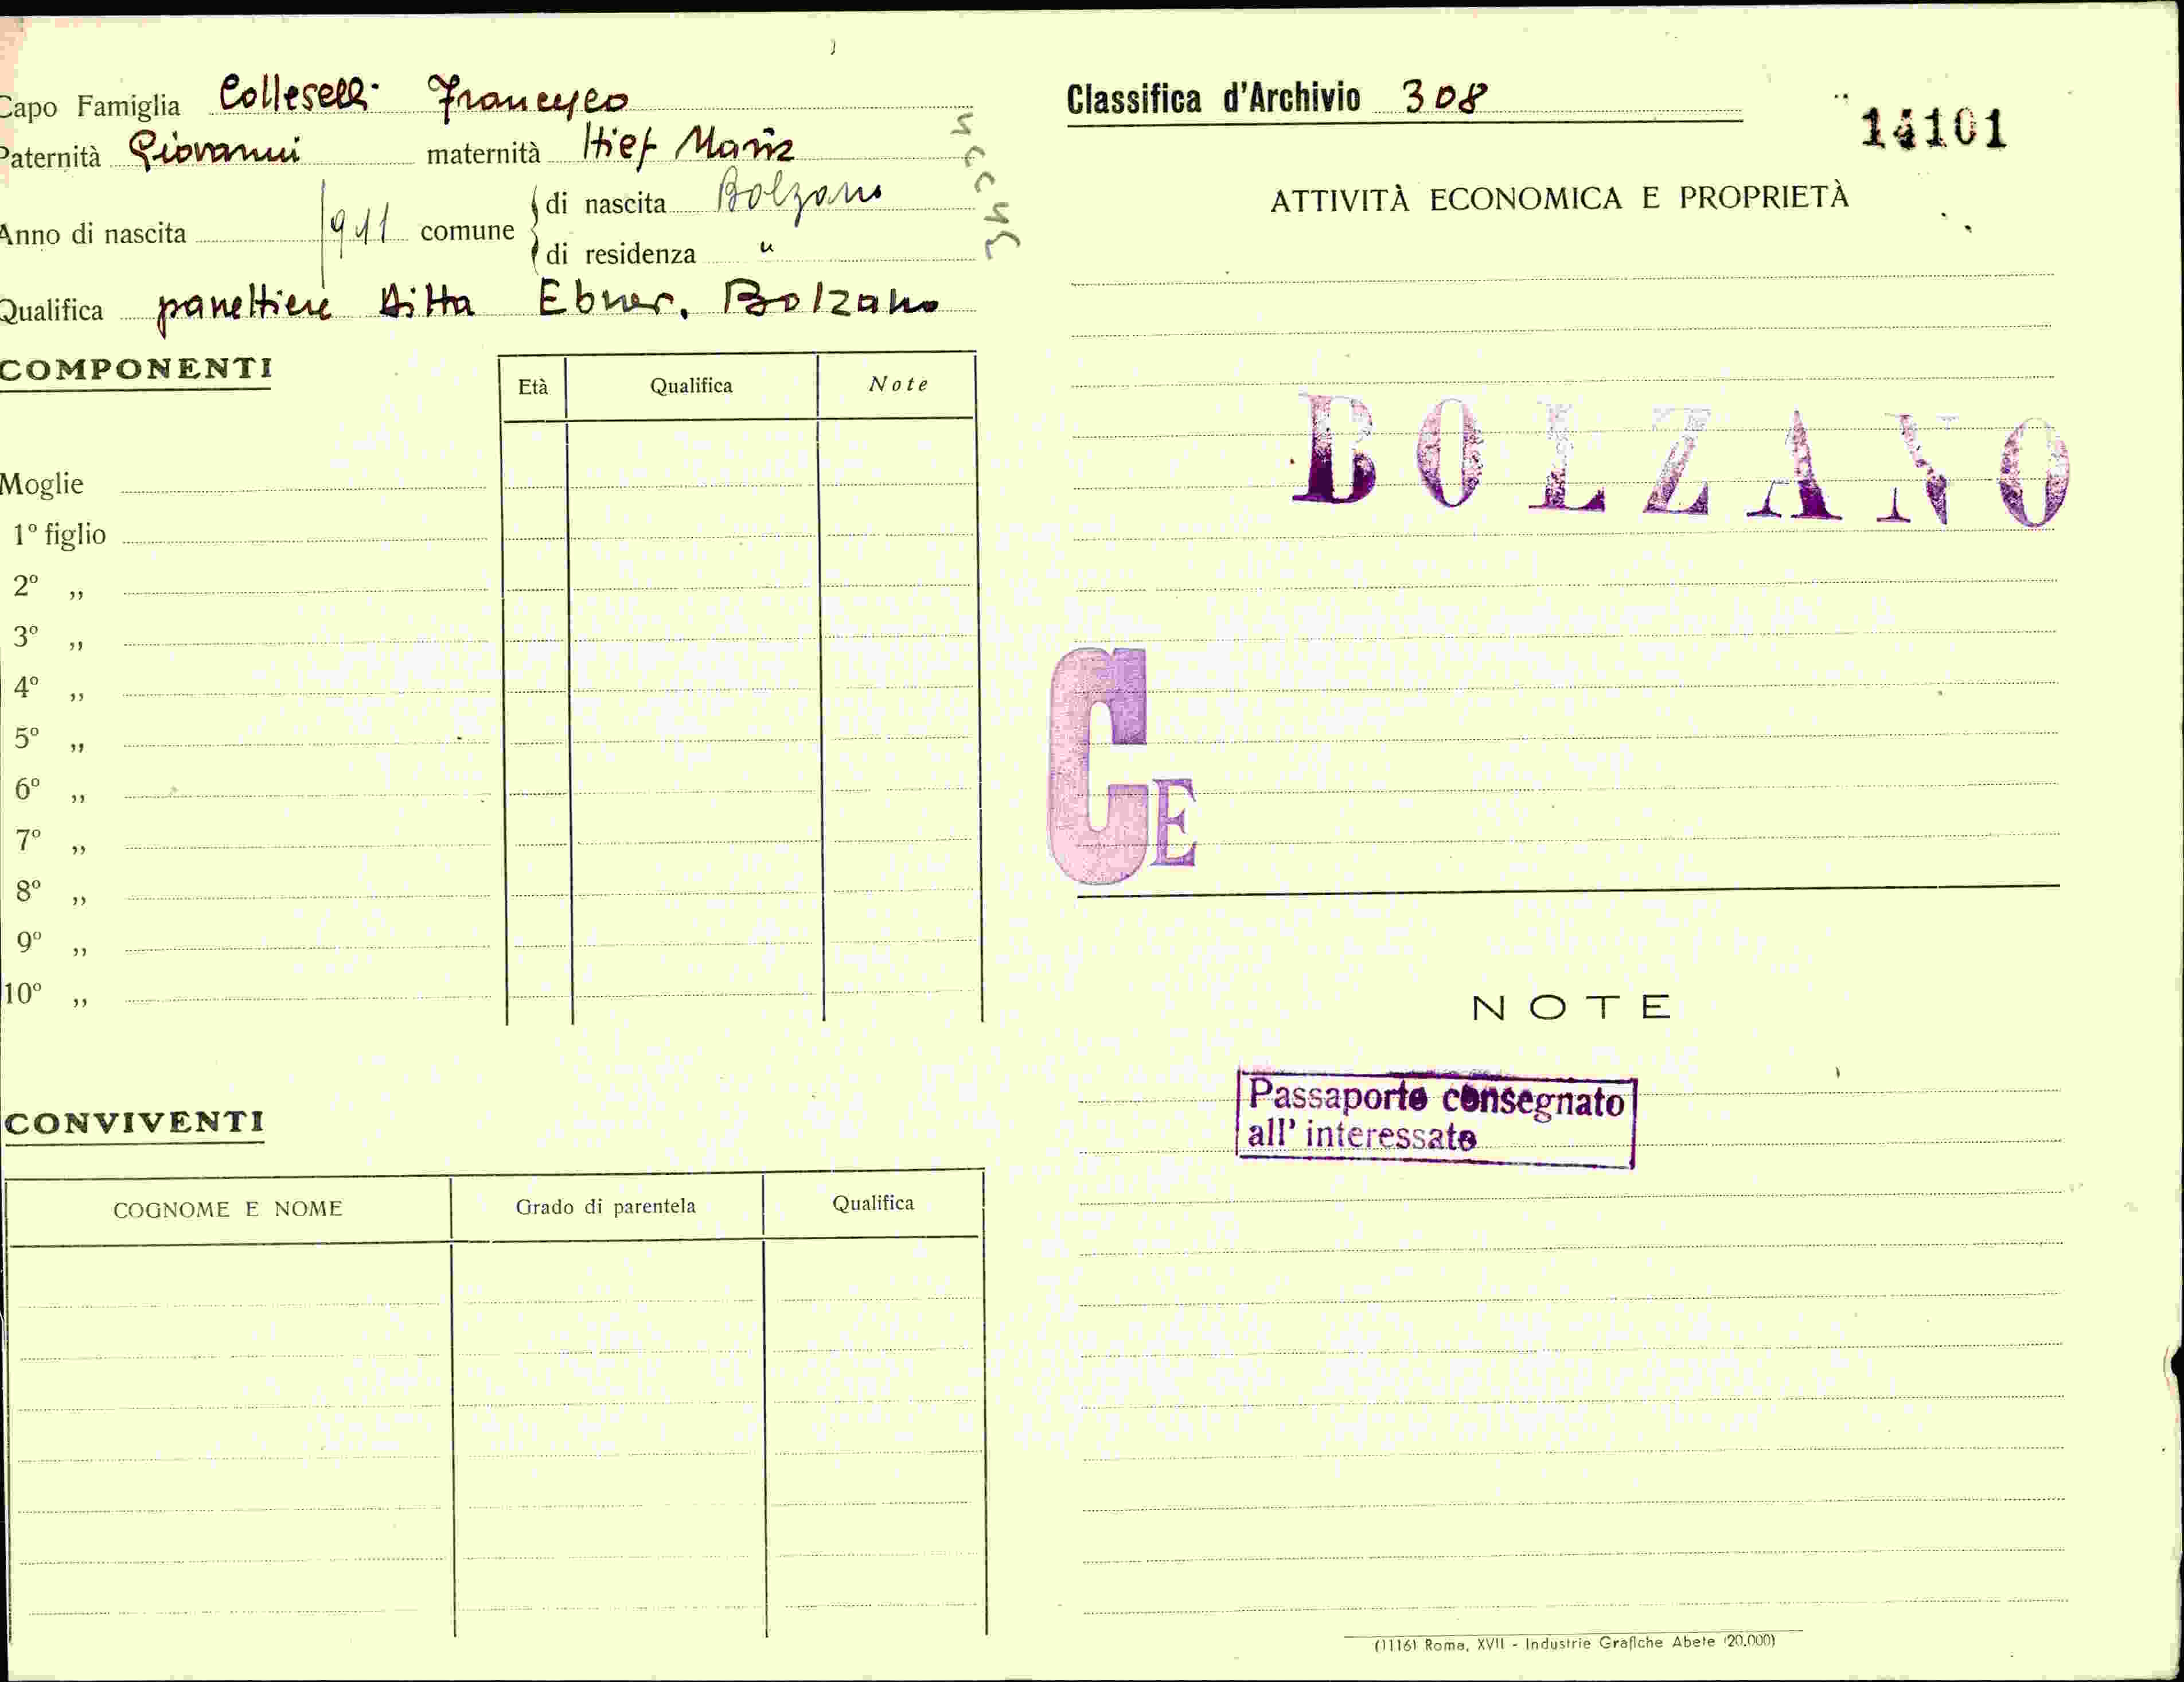 Capo Famiglia Colleselli Francesco
Paternità Giovanni maternità Hief Maria
Anno di nascita 1911 comune
di nascita Bolzano
di residenza "
Qualifica panettiere Ditta Ebner, Bolzano
COMPONENTI
Età Qualifica Note
Moglie
1º figlio
2º ,,
3º ,,
4º ,,
5º ,,
6º ,,
7º ,,
8º ,,
9º ,,
10º ,,
CONVIVENTI
COGNOME E NOME Grado di parentela Qualifica
Classifica d'Archivio 308
14101
ATTIVITÀ ECONOMICA E PROPRIETÀ
BOLZANO
CE
NOTE
Passaporto consegnato
all' interessato
(1116) Roma, XVII - Industrie Grafiche Abete (20.000)